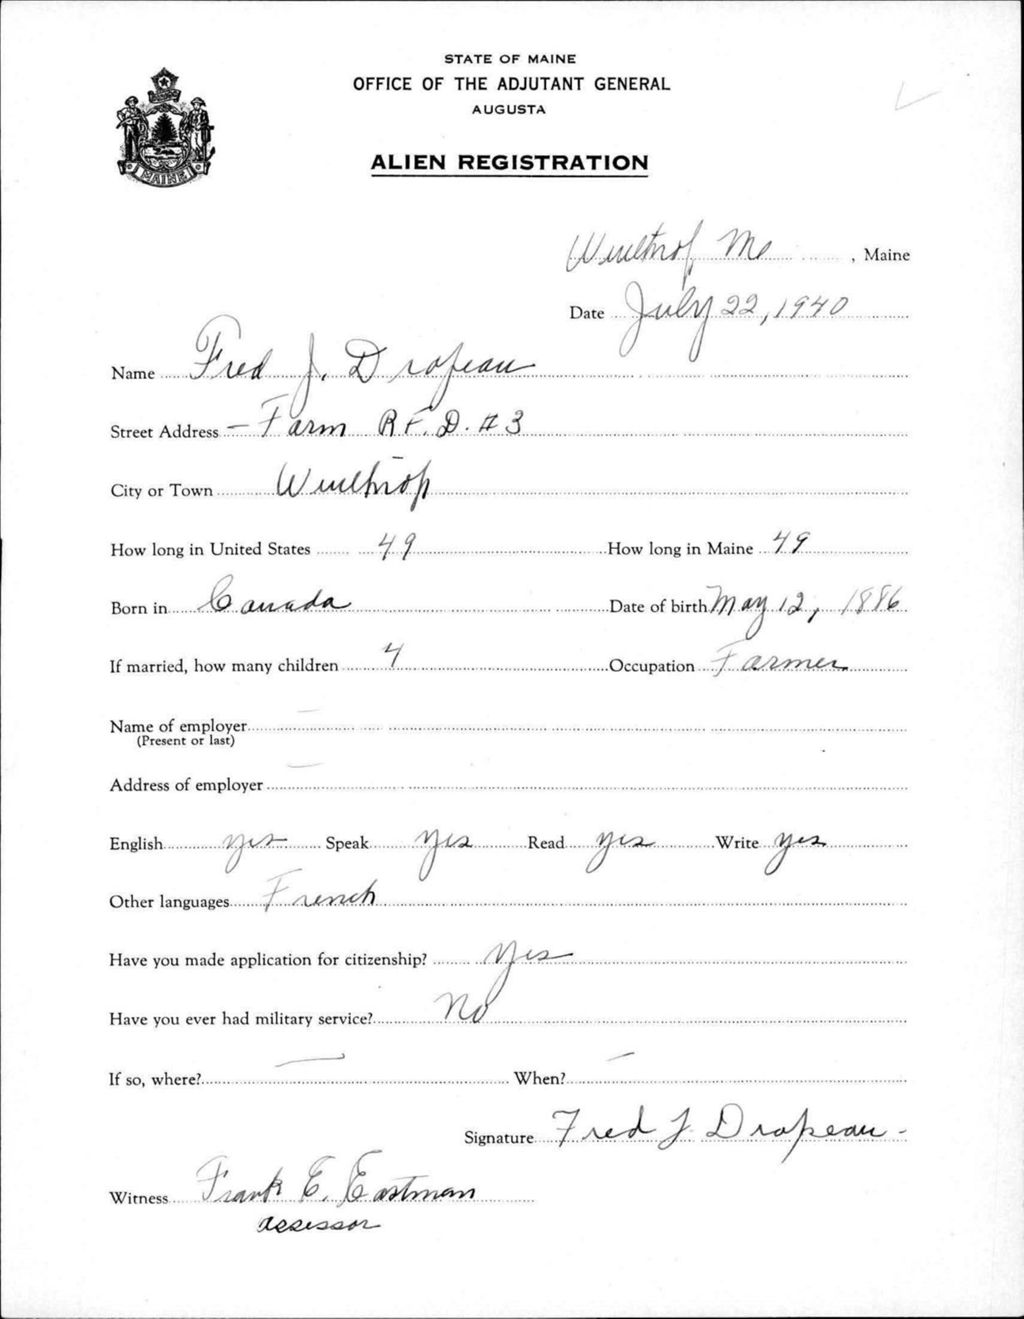 STATE OF MAINE
OFFICE OF THE ADJUTANT GENERAL
AUGUSTA
ALIEN REGISTRATION
MAINE
Winthrop Me, Maine
Date July 22, 1940
Name Fred J. Drapeau
Street Address - Farm R.F.D. #3
City or Town Winthrop
How long in United States 49 How long in Maine 49
Born in Canada Date of birth May 12, 1886
If married, how many children 4 Occupation Farmer
Name of employer —
(Present or last)
Address of employer —
English yes Speak yes Read yes Write yes
Other languages French
Have you made application for citizenship? Yes
Have you ever had military service? No
If so, where? — When? —
Signature Fred J. Drapeau -
Witness Frank E. Eastman
assessor